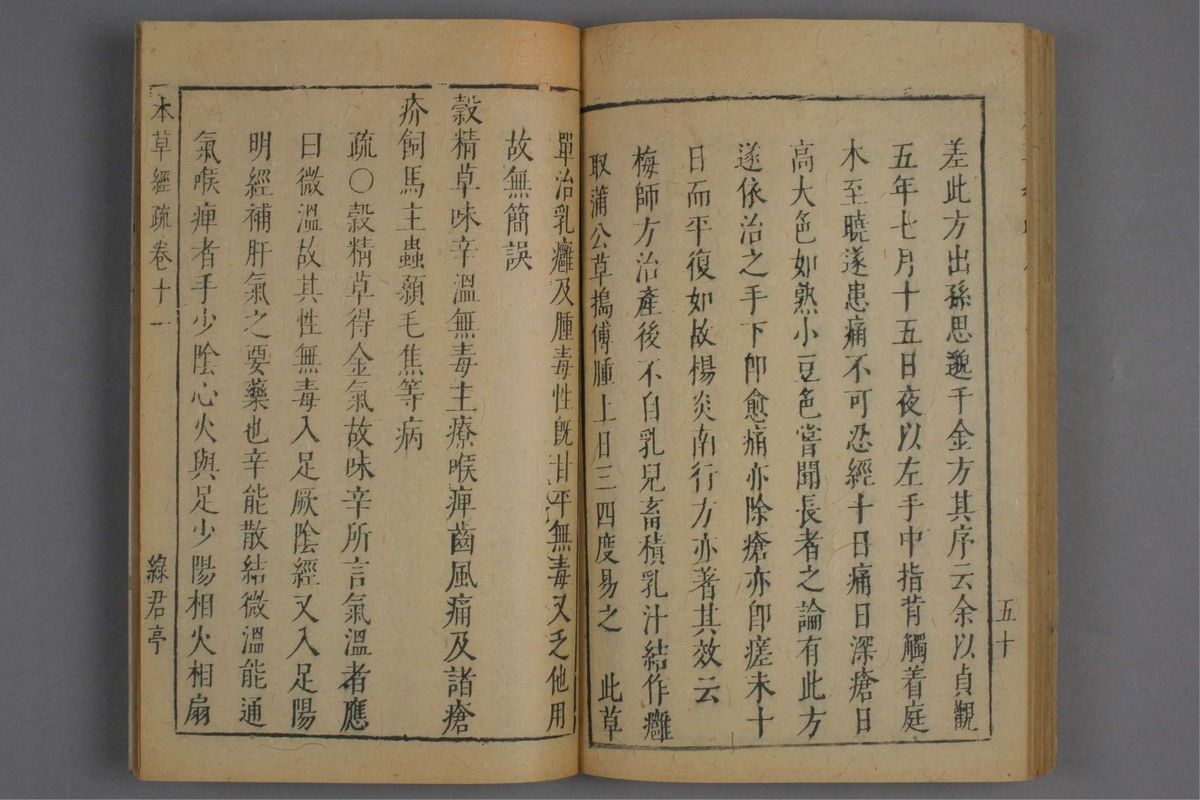 差此方出孫思邈千金方其序云余以貞觀
五年七月十五日夜以左手中指背觸着庭
木至曉遂患痛不可忍經十日痛日深瘡日
高大色如熟小豆色嘗聞長者之論有此方
遂依治之手下卽愈痛亦除瘡亦卽瘥未十
日而平復如故楊炎南行方亦著其效云
梅師方治產後不自乳兒畜積乳汁結作癰
取蒲公草搗傅腫上日三四度易之 此草
五十
單治乳癰及腫毒性旣甘平無毒又乏他用
故無簡誤
穀精草味辛溫無毒主療喉痺齒風痛及諸瘡
疥飼馬主蟲顙毛焦等病
疏〇穀精草得金氣故味辛所言氣溫者應
曰微溫故其性無毒入足厥陰經又入足陽
明經補肝氣之要藥也辛能散結微溫能通
氣喉痺者手少陰心火與足少陽相火相扇
本草經疏卷十一
綠君亭